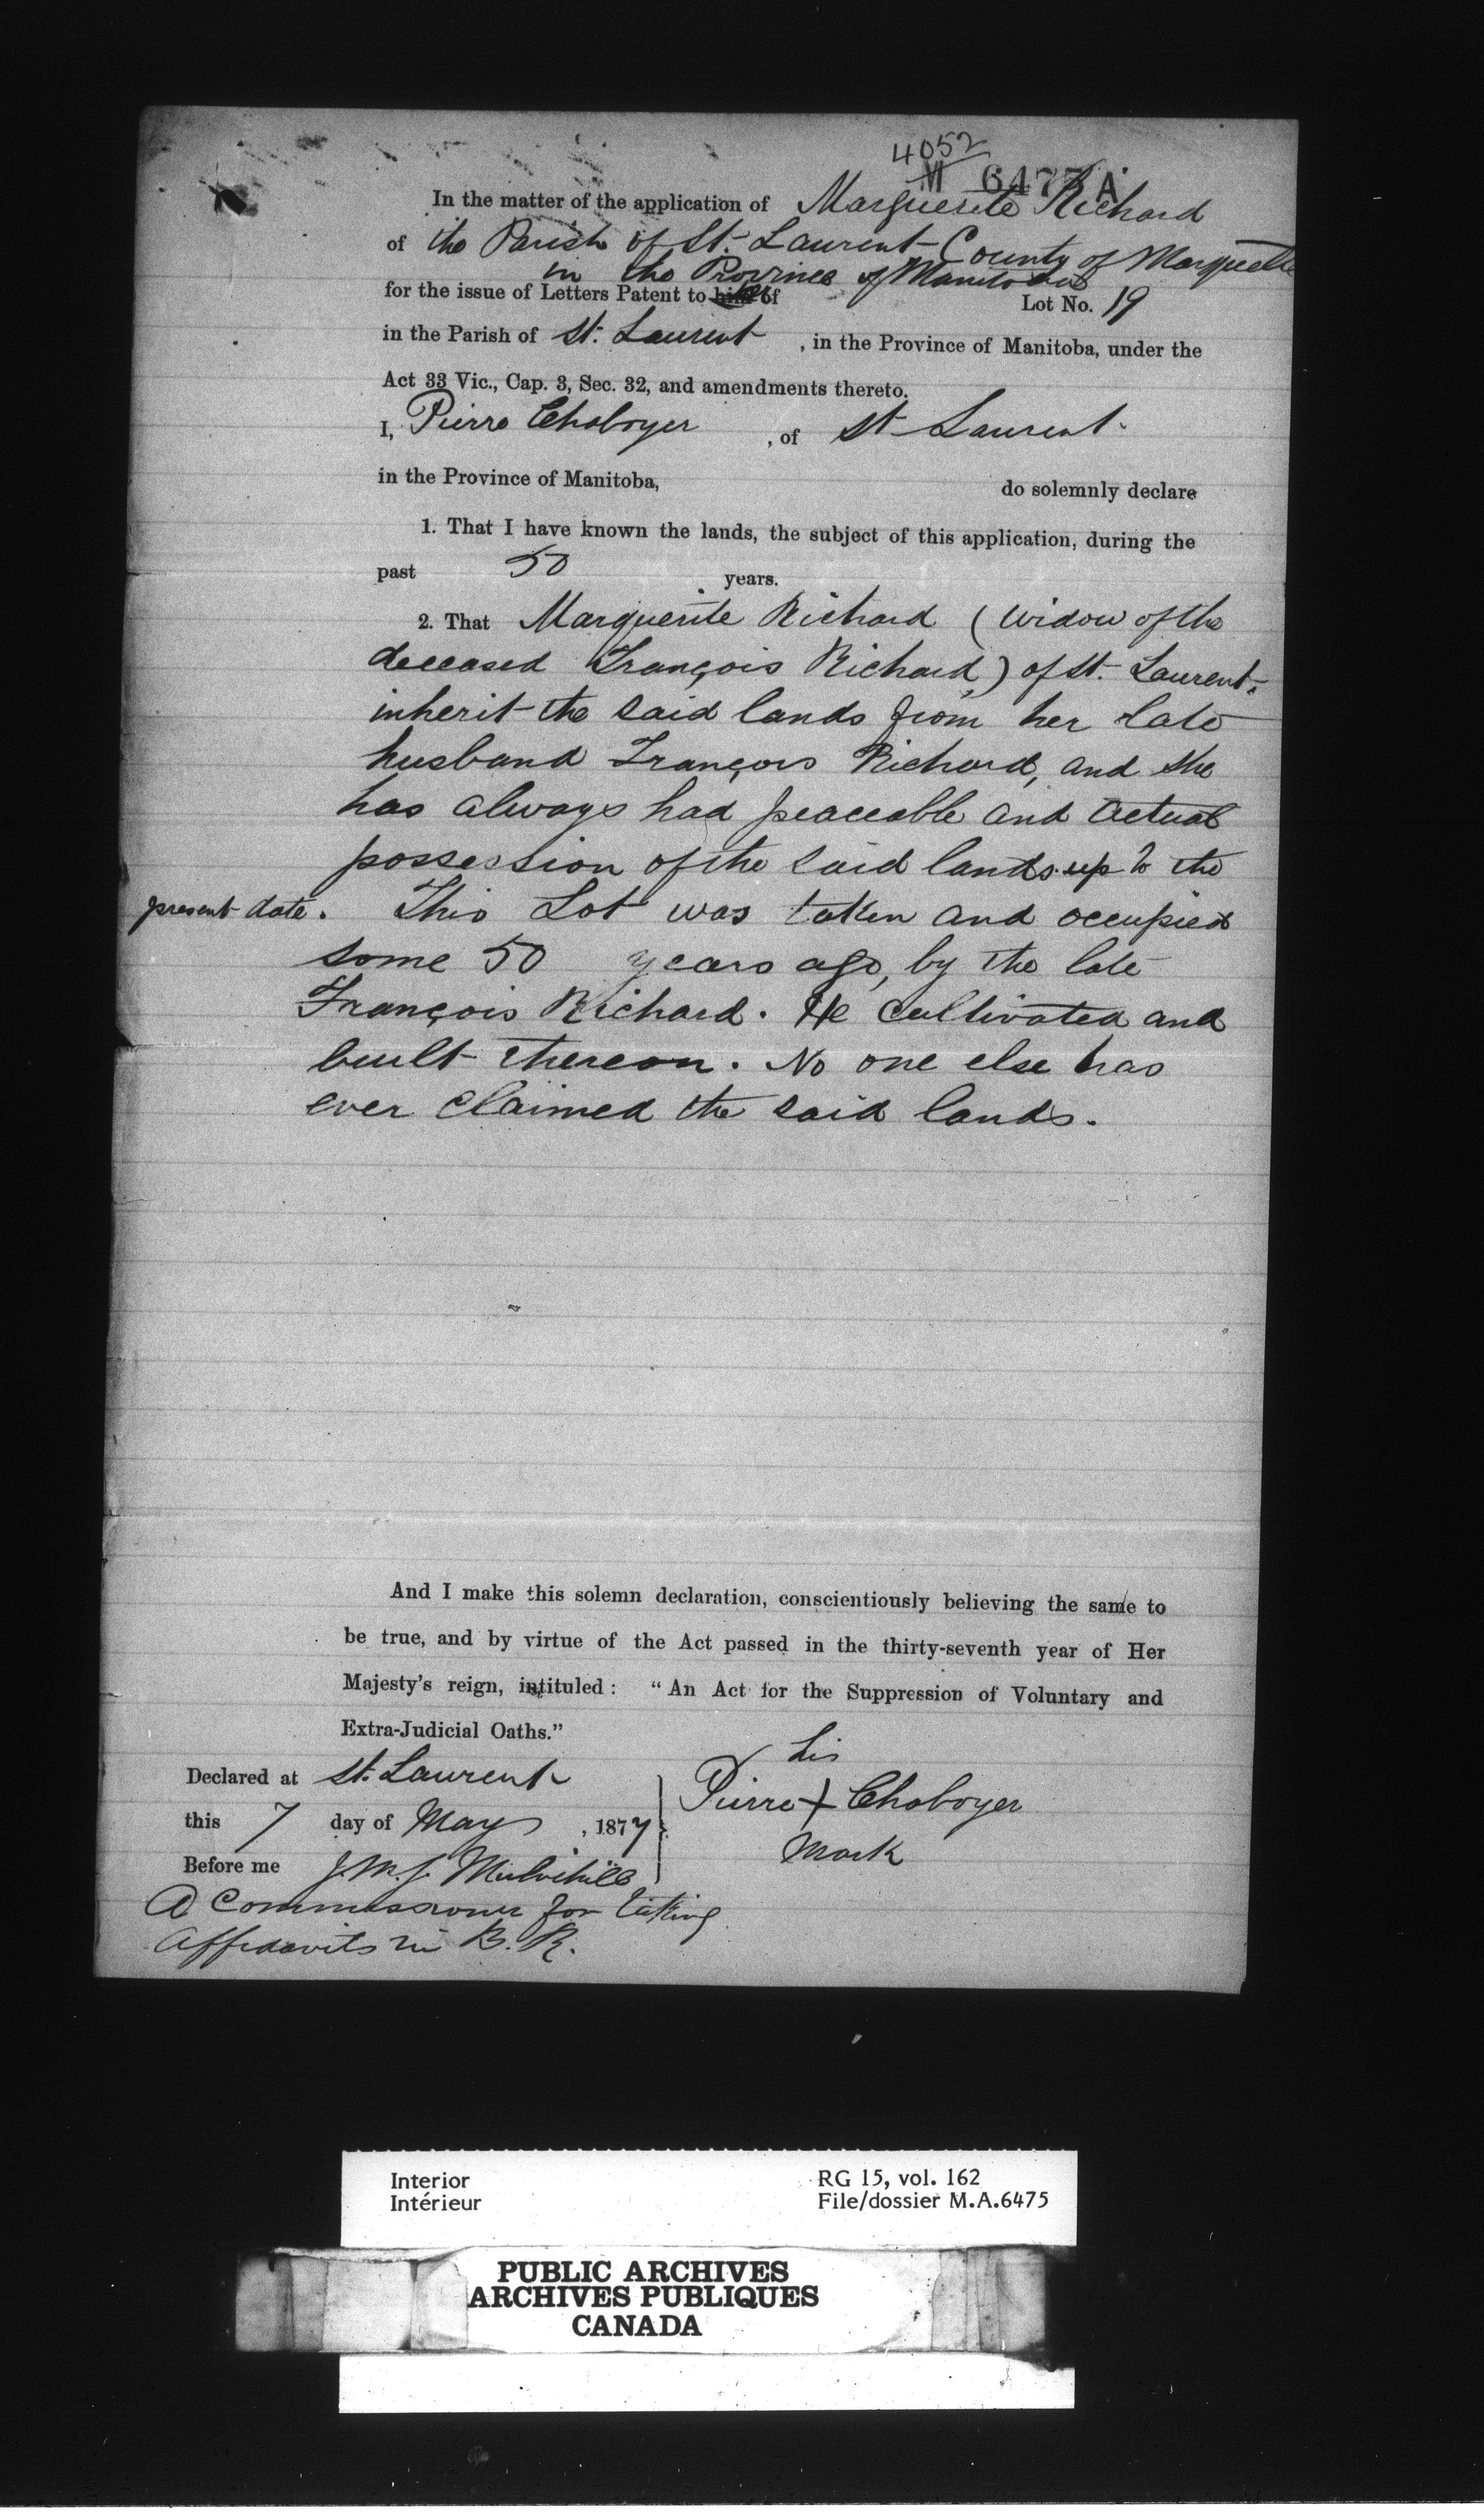 4052
M 6475 A
In the matter of the application of Marguerite Richard
of the Parish of St. Laurent County of Marquette
in the Province of Manitoba
for the issue of Letters Patent to her of Lot No. 19
in the Parish of St. Laurent , in the Province of Manitoba, under the
Act 33 Vic., Cap. 3, Sec. 32, and amendments thereto.
I, Pierre Chaboyer , of St Laurent.
in the Province of Manitoba, do solemnly declare
1. That I have known the lands, the subject of this application, during the
past 50 years.
2. That Marguerite Richard (Widow of the
deceased François Richard,) of St. Laurent.
inherit the said lands from her late
husband François Richard, and she
has always had peaceable and actual
possession of the said lands up to the
present date. This Lot was taken and occupied
some 50 years ago, by the late
François Richard. He cultivated and
built thereon. No one else has
ever claimed the said lands.
And I make this solemn declaration, conscientiously believing the same to
be true, and by virtue of the Act passed in the thirty-seventh year of Her
Majesty's reign, intituled : "An Act for the Suppression of Voluntary and
Extra-Judicial Oaths."
Declared at St. Laurent
this 7 day of May , 1877
Before me J. M. J. Mulvihill
A Commissioner for taking
Affidavits in B. R.
his
Pierre + Chaboyer
Mark
Interior RG 15, vol. 162
Intérieur File/dossier M.A.6475
PUBLIC ARCHIVES
ARCHIVES PUBLIQUES
CANADA